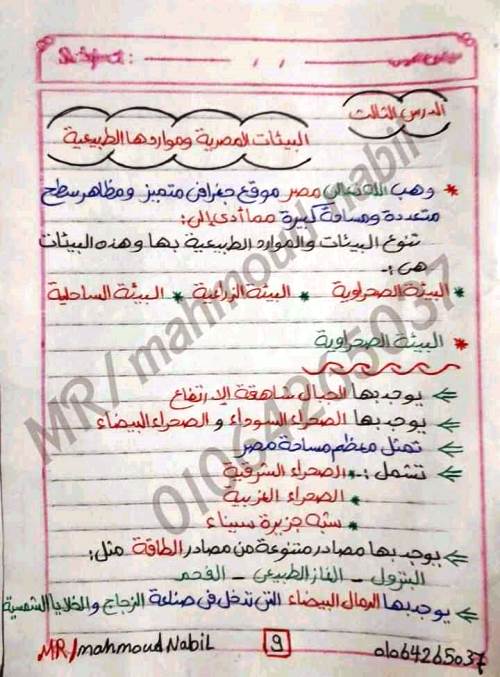 Subject:
الدرس الثالث
البيئات المصرية ومواردها الطبيعية
* وهب الله تعالى مصر موقع جغرافى متميز ومظاهر سطح
متعددة ومساحة كبيرة مما أدى إلى:
تنوع البيئات والموارد الطبيعية بها وهذه البيئات
هى :-
* البيئة الصحراوية * البيئة الزراعية * البيئة الساحلية
* البيئة الصحراوية
يوجد بها الجبال شاهقة الإرتفاع
يوجد بها الصحراء السوداء و الصحراء البيضاء
تمثل معظم مساحة مصر
تشمل :- * الصحراء الشرقية
* الصحراء الغربية
* شبه جزيرة سيناء
يوجد بها مصادر متنوعة من مصادر الطاقة مثل:
البترول - الغاز الطبيعى - الفحم
يوجد بها الرمال البيضاء التى تدخل فى صناعة الزجاج والخلايا الشمسية
MR/mahmoud Nabil 9 01064265037
MR/ mahmoud nabil
01064265037